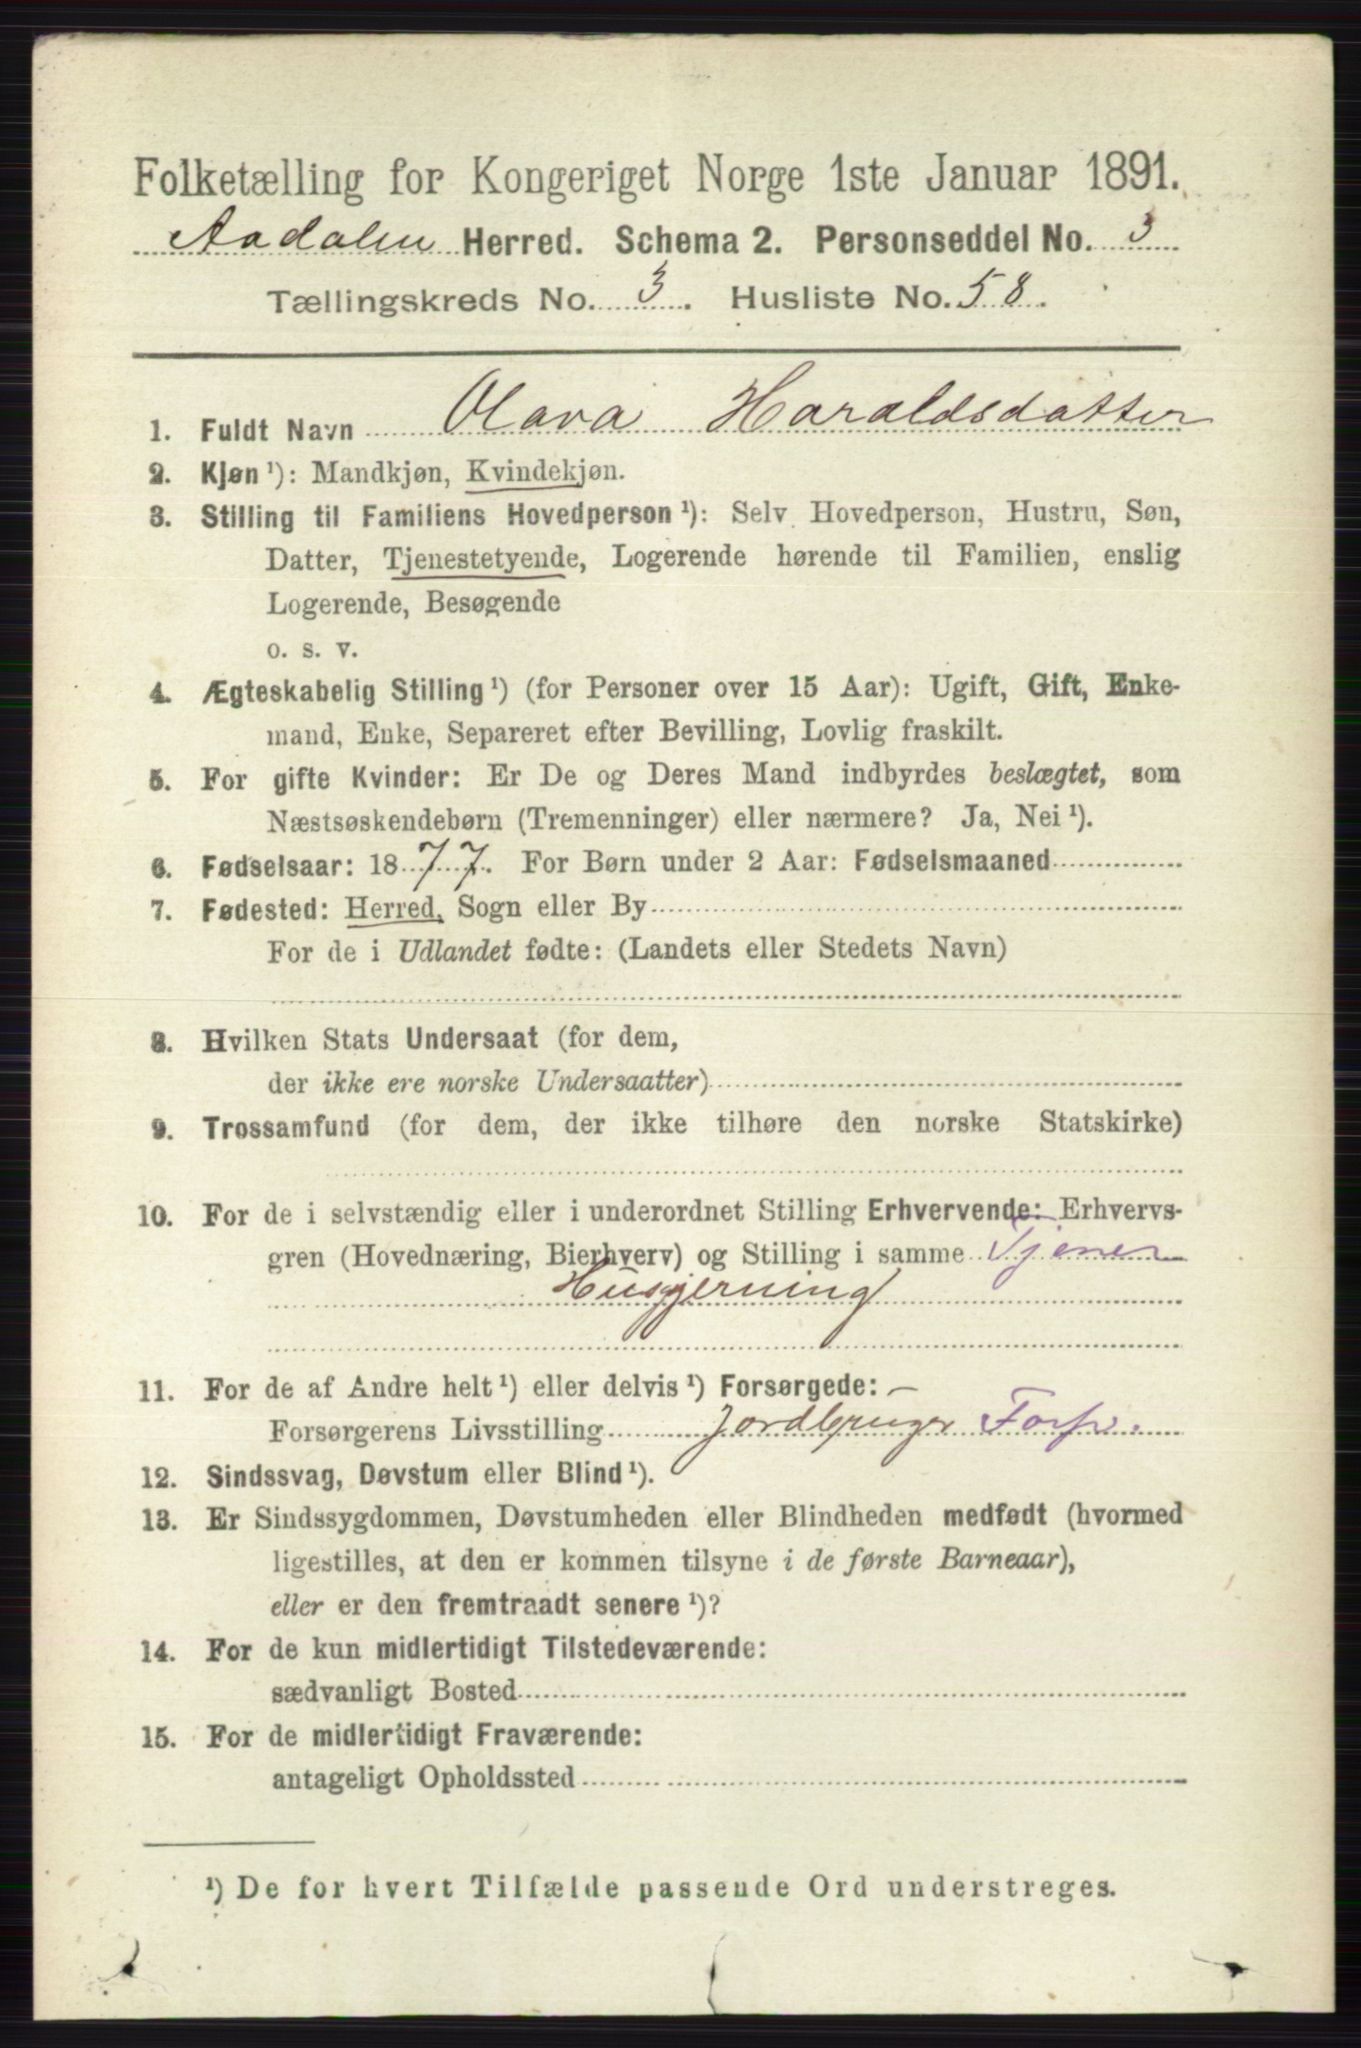 Folketælling for Kongeriget Norge 1ste Januar 1891.
Aadalen Herred. Schema 2. Personseddel No. 3
Tællingskreds No. 3. Husliste No. 58.
1. Fuldt Navn Olava Haraldsdatter
2. Kjøn ¹): Mandkjøn, Kvindekjøn.
3. Stilling til Familiens Hovedperson ¹): Selv Hovedperson, Hustru, Søn,
Datter, Tjenestetyende, Logerende hørende til Familien, enslig
Logerende, Besøgende
o. s. v.
4. Ægteskabelig Stilling ¹) (for Personer over 15 Aar): Ugift, Gift, Enke-
mand, Enke, Separeret efter Bevilling, Lovlig fraskilt.
5. For gifte Kvinder: Er De og Deres Mand indbyrdes beslægtet, som
Næstsøskendebørn (Tremenninger) eller nærmere? Ja, Nei ¹).
6. Fødselsaar: 1877. For Børn under 2 Aar: Fødselsmaaned
7. Fødested: Herred, Sogn eller By
For de i Udlandet fødte: (Landets eller Stedets Navn)
8. Hvilken Stats Undersaat (for dem,
der ikke ere norske Undersaatter)
9. Trossamfund (for dem, der ikke tilhøre den norske Statskirke)
10. For de i selvstændig eller i underordnet Stilling Erhvervende: Erhvervs-
gren (Hovednæring, Bierhverv) og Stilling i samme Tjener
Husgjerning
11. For de af Andre helt ¹) eller delvis ¹) Forsørgede: –
Forsørgerens Livsstilling Jordbruger Forp.
12. Sindssvag, Døvstum eller Blind ¹).
13. Er Sindssygdommen, Døvstumheden eller Blindheden medfødt (hvormed
ligestilles, at den er kommen tilsyne i de første Barneaar),
eller er den fremtraadt senere ¹)?
14. For de kun midlertidigt Tilstedeværende:
sædvanligt Bosted
15. For de midlertidigt Fraværende:
antageligt Opholdssted
¹) De for hvert Tilfælde passende Ord understreges.